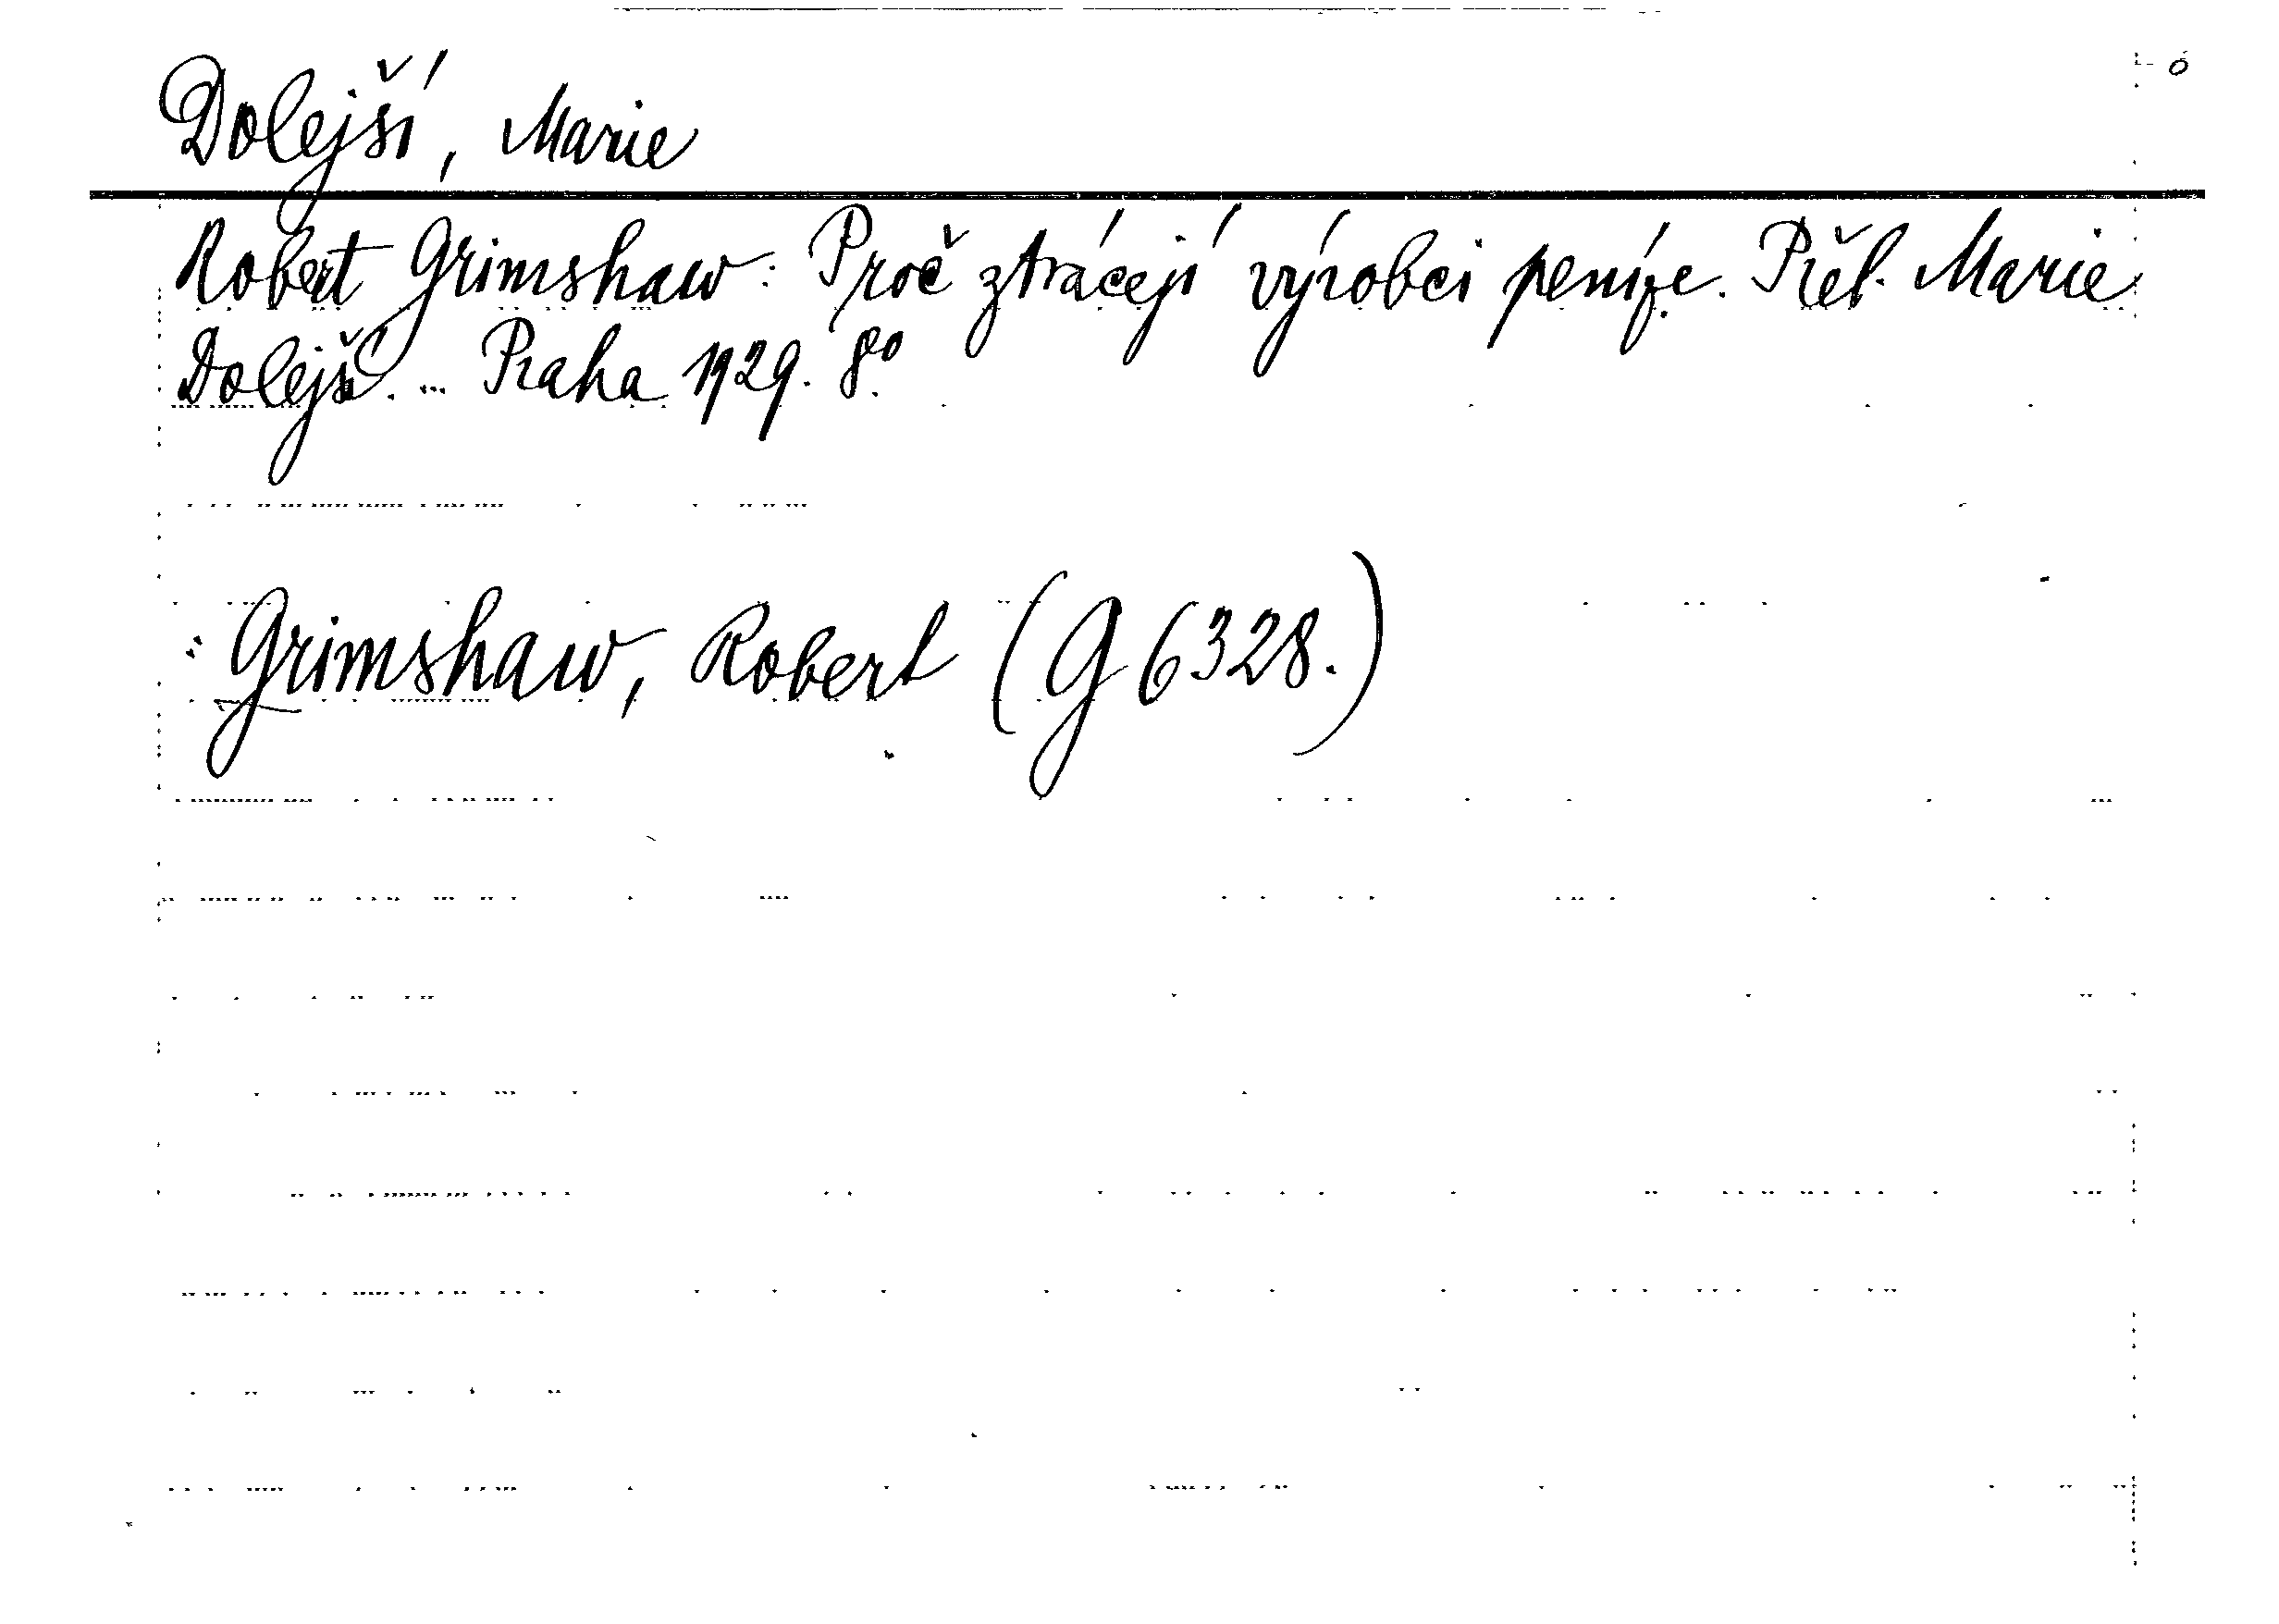 Dolejší, Marie
Robert Grimshaw: Proč ztrácejí výrobci peníze. Přel. Marie
Dolejší. ... Praha 1929. 8°.
: Grimshaw, Robert (G 6328.)